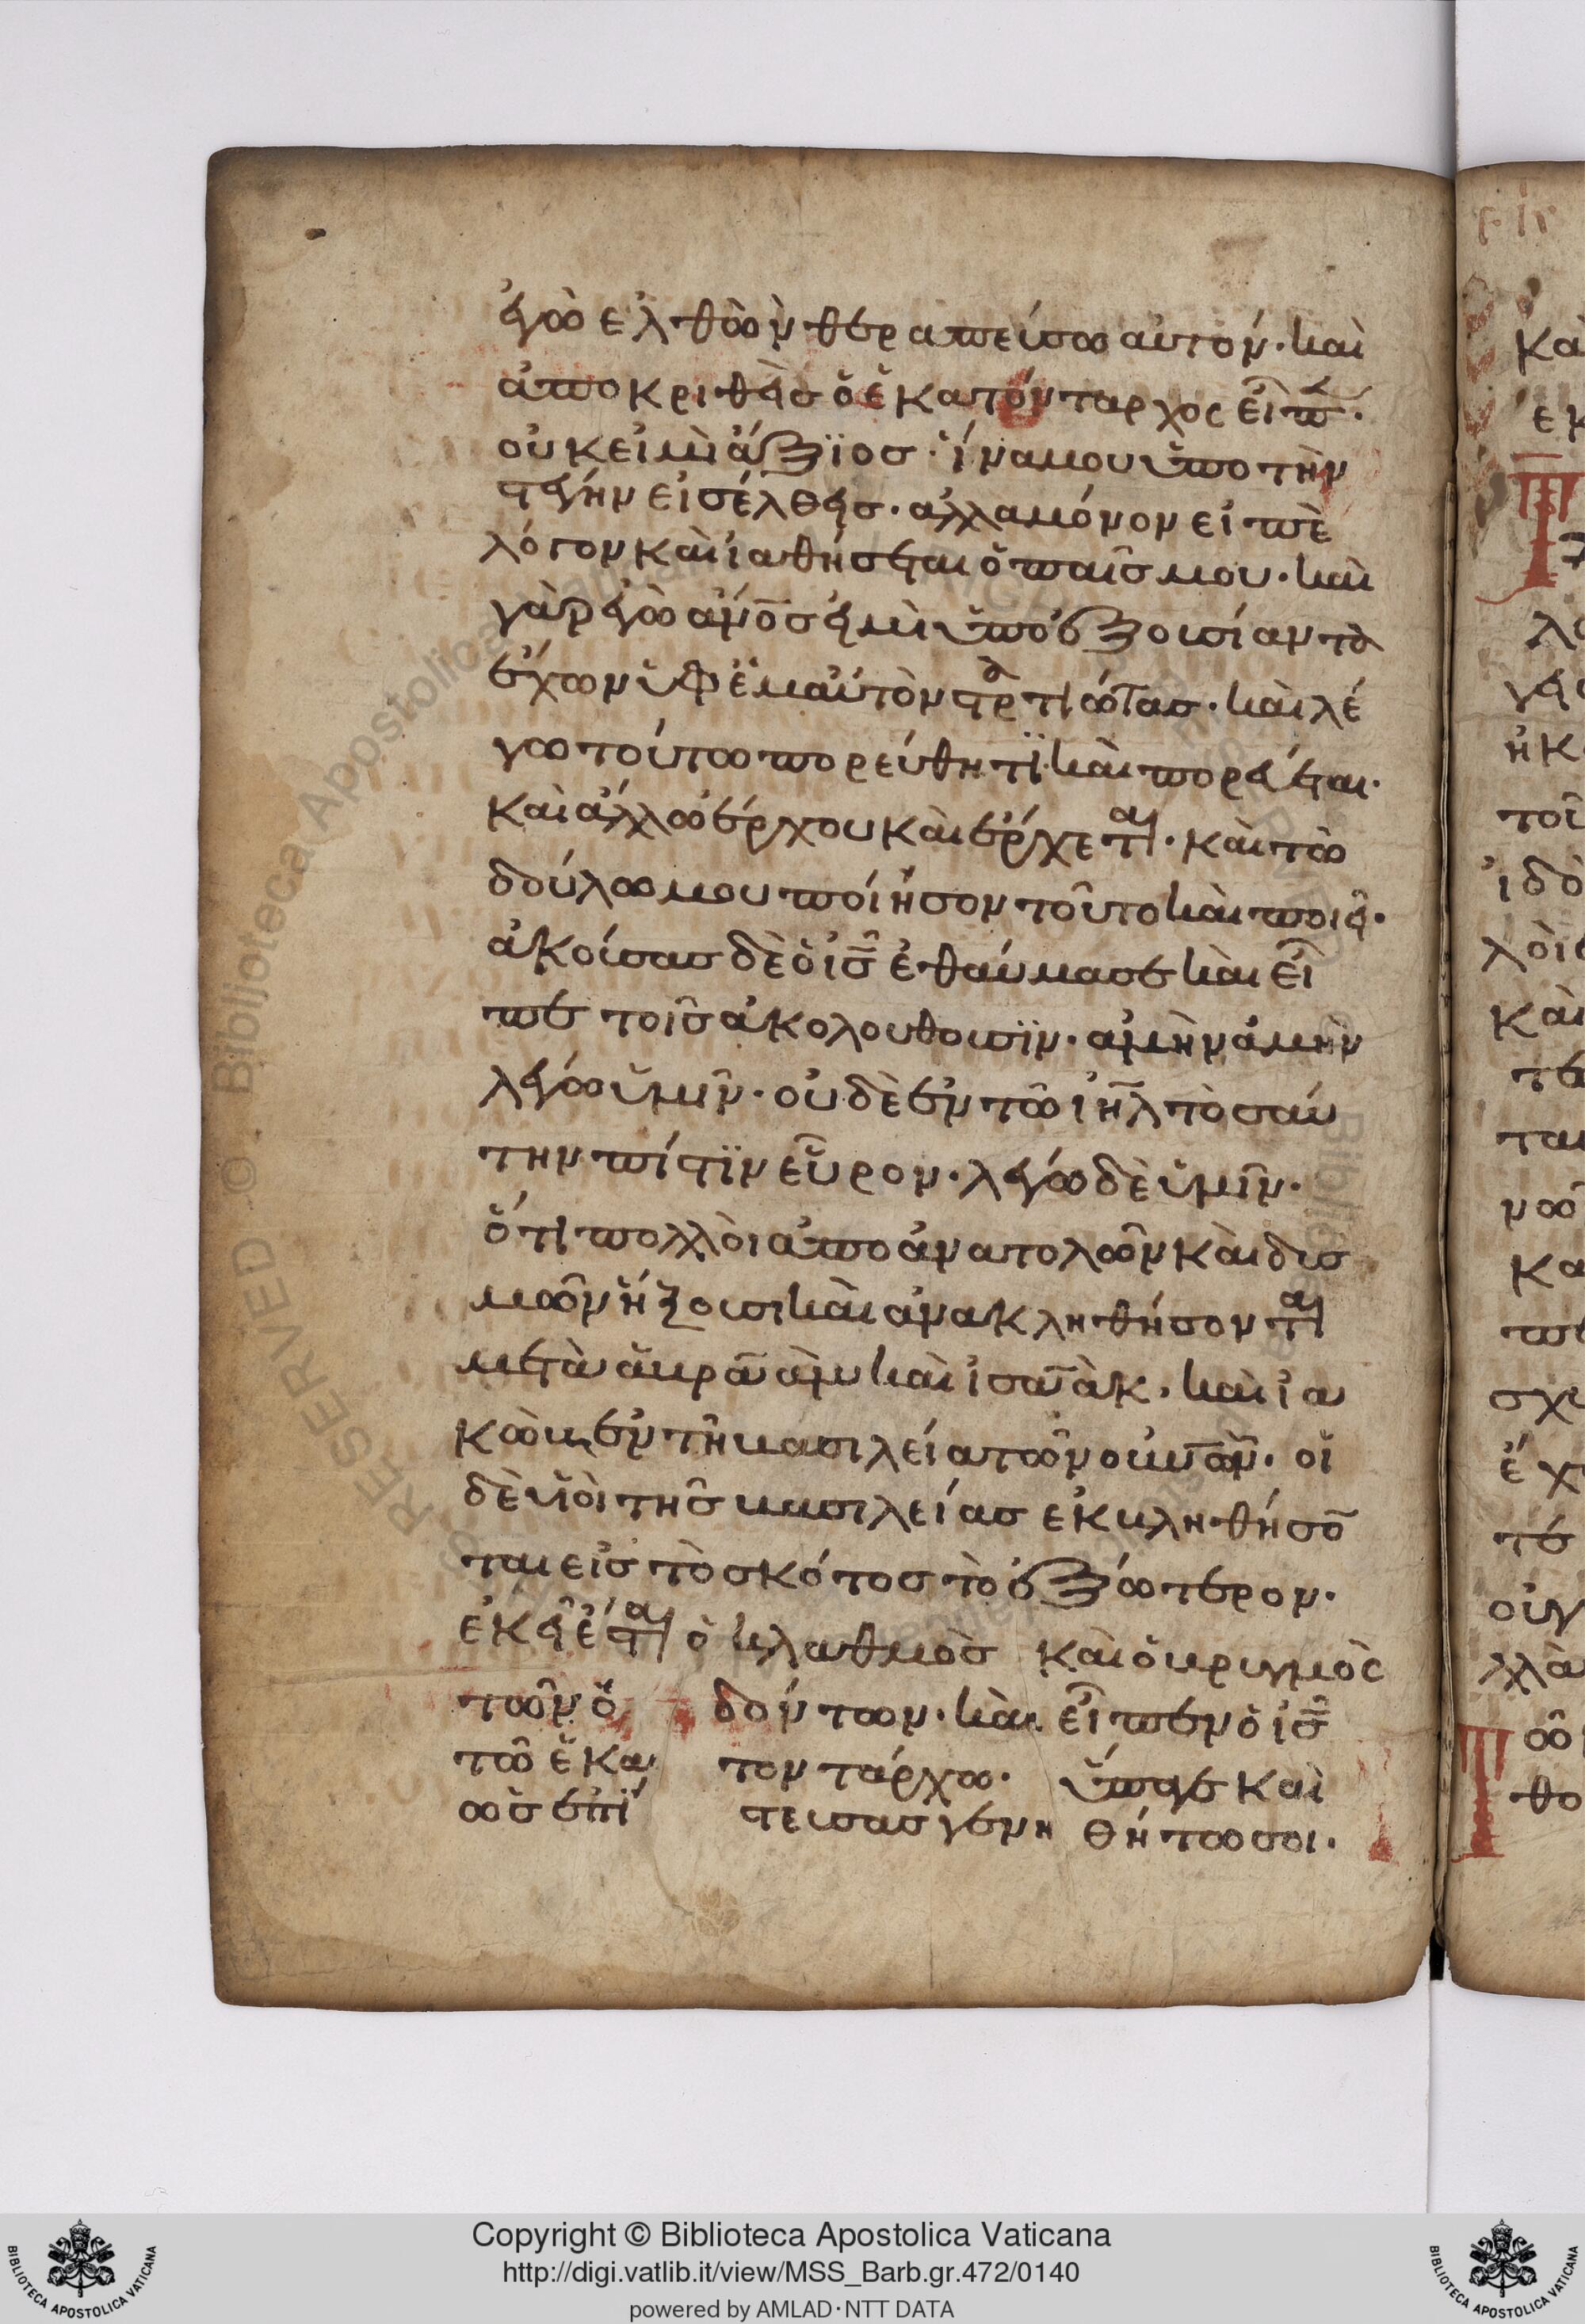 ἐγὼ ἐλθὼν θεραπεύσω αὐτόν· καὶ
ἀποκριθεὶς ὁ ἑκατόνταρχος εἶπ·
οὐκ εἰμὶ ἄξϊος· ἵνα μου ὑπο τὴν
στέγην εἰσέλθεις· ἀλλα μόνον εἰπὲ
λόγον καὶ ἰαθήσεται ὁ παῖς μου· καὶ
γὰρ ἐγὼ ἀνο̅ς εἰμὶ ὑπὸ ἐξουσίαν τὰ
ἔχων ὑφ ἐμαὐτὸν στρατιώτας· καὶ λέ
γω τούτω πορεύθητϊ καὶ πορεύεται·
καὶ ἄλλω ἔρχου καὶ ἔρχεται· καὶ τῶ
δούλω μου ποίησον τοῦτο καὶ ποιεῖ·
ἀκούσας δὲ ὁ ἰς̅ ἐθαύμασε καὶ εἶ
πε τοῖς ἀκολουθουσϊν· ἀμὴν ἀμὴν
λέγω ὑμῖν· οὐδὲ ἐν τῶ ἰη̅λ τὸσαύ
την πίστϊν εὗρον· λέγω δὲ ὑμῖν·
ὅτι πολλοὶ ἀπο ἀνατολῶν καὶ δυσ
μῶν ἥξουσι καὶ ἀνακληθήσονται
μετὰ ἀβραὰμ καὶ ἰσαὰκ· καὶ ἰα
κὼβ ἐν τῆ βασιλεία τῶν οὐνῶν· οἱ
δὲ υἱοὶ τῆς βασιλείας ἐκβληθήσο̅
ται εἰς τὸ σκότος τὸ ἐξώτερον·
ἐκεῖ ἔσται ὁ κλαθμὸς καὶ ὁ βρυγμὸς
τῶν ὀδόντων· καὶ εἶπεν ὁ ἰς̅
τῶ ἑκατοντάρχω· ὕπαγε καὶ
ὡς ἐπίστευσας γενηθήτω σοι·